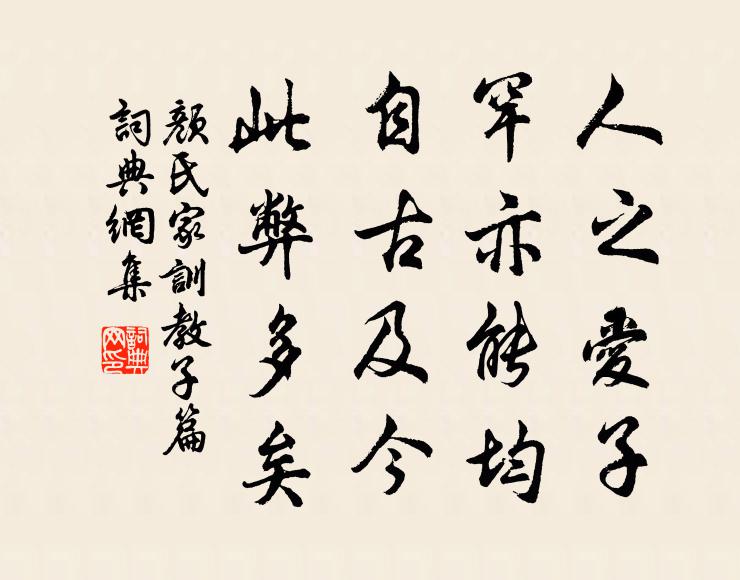 人之愛子
罕亦能均
自古及今
此弊多矣
顏氏家訓教子篇
詞典網集
詞典
网印